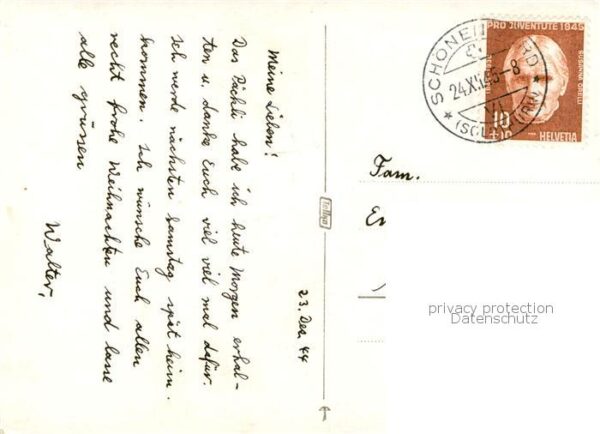 Meine Lieben!
Das Päckli habe ich heute Morgen erhal-
ten u. danke Euch viel viel mal dafür.
Ich werde nächsten Samstag spät heim-
kommen. Ich wünsche Euch allen
recht frohe Weihnachten und lasse
alle grüssen
Walter.
23. Dez. 44
PRO JUVENTUTE 1945
SUSANNA ORELLI
10
+10
HELVETIA
SCHÖNENWERD
24.XII.45-8
(SOLOTHURN)
Fam.
privacy protection
Datenschutz